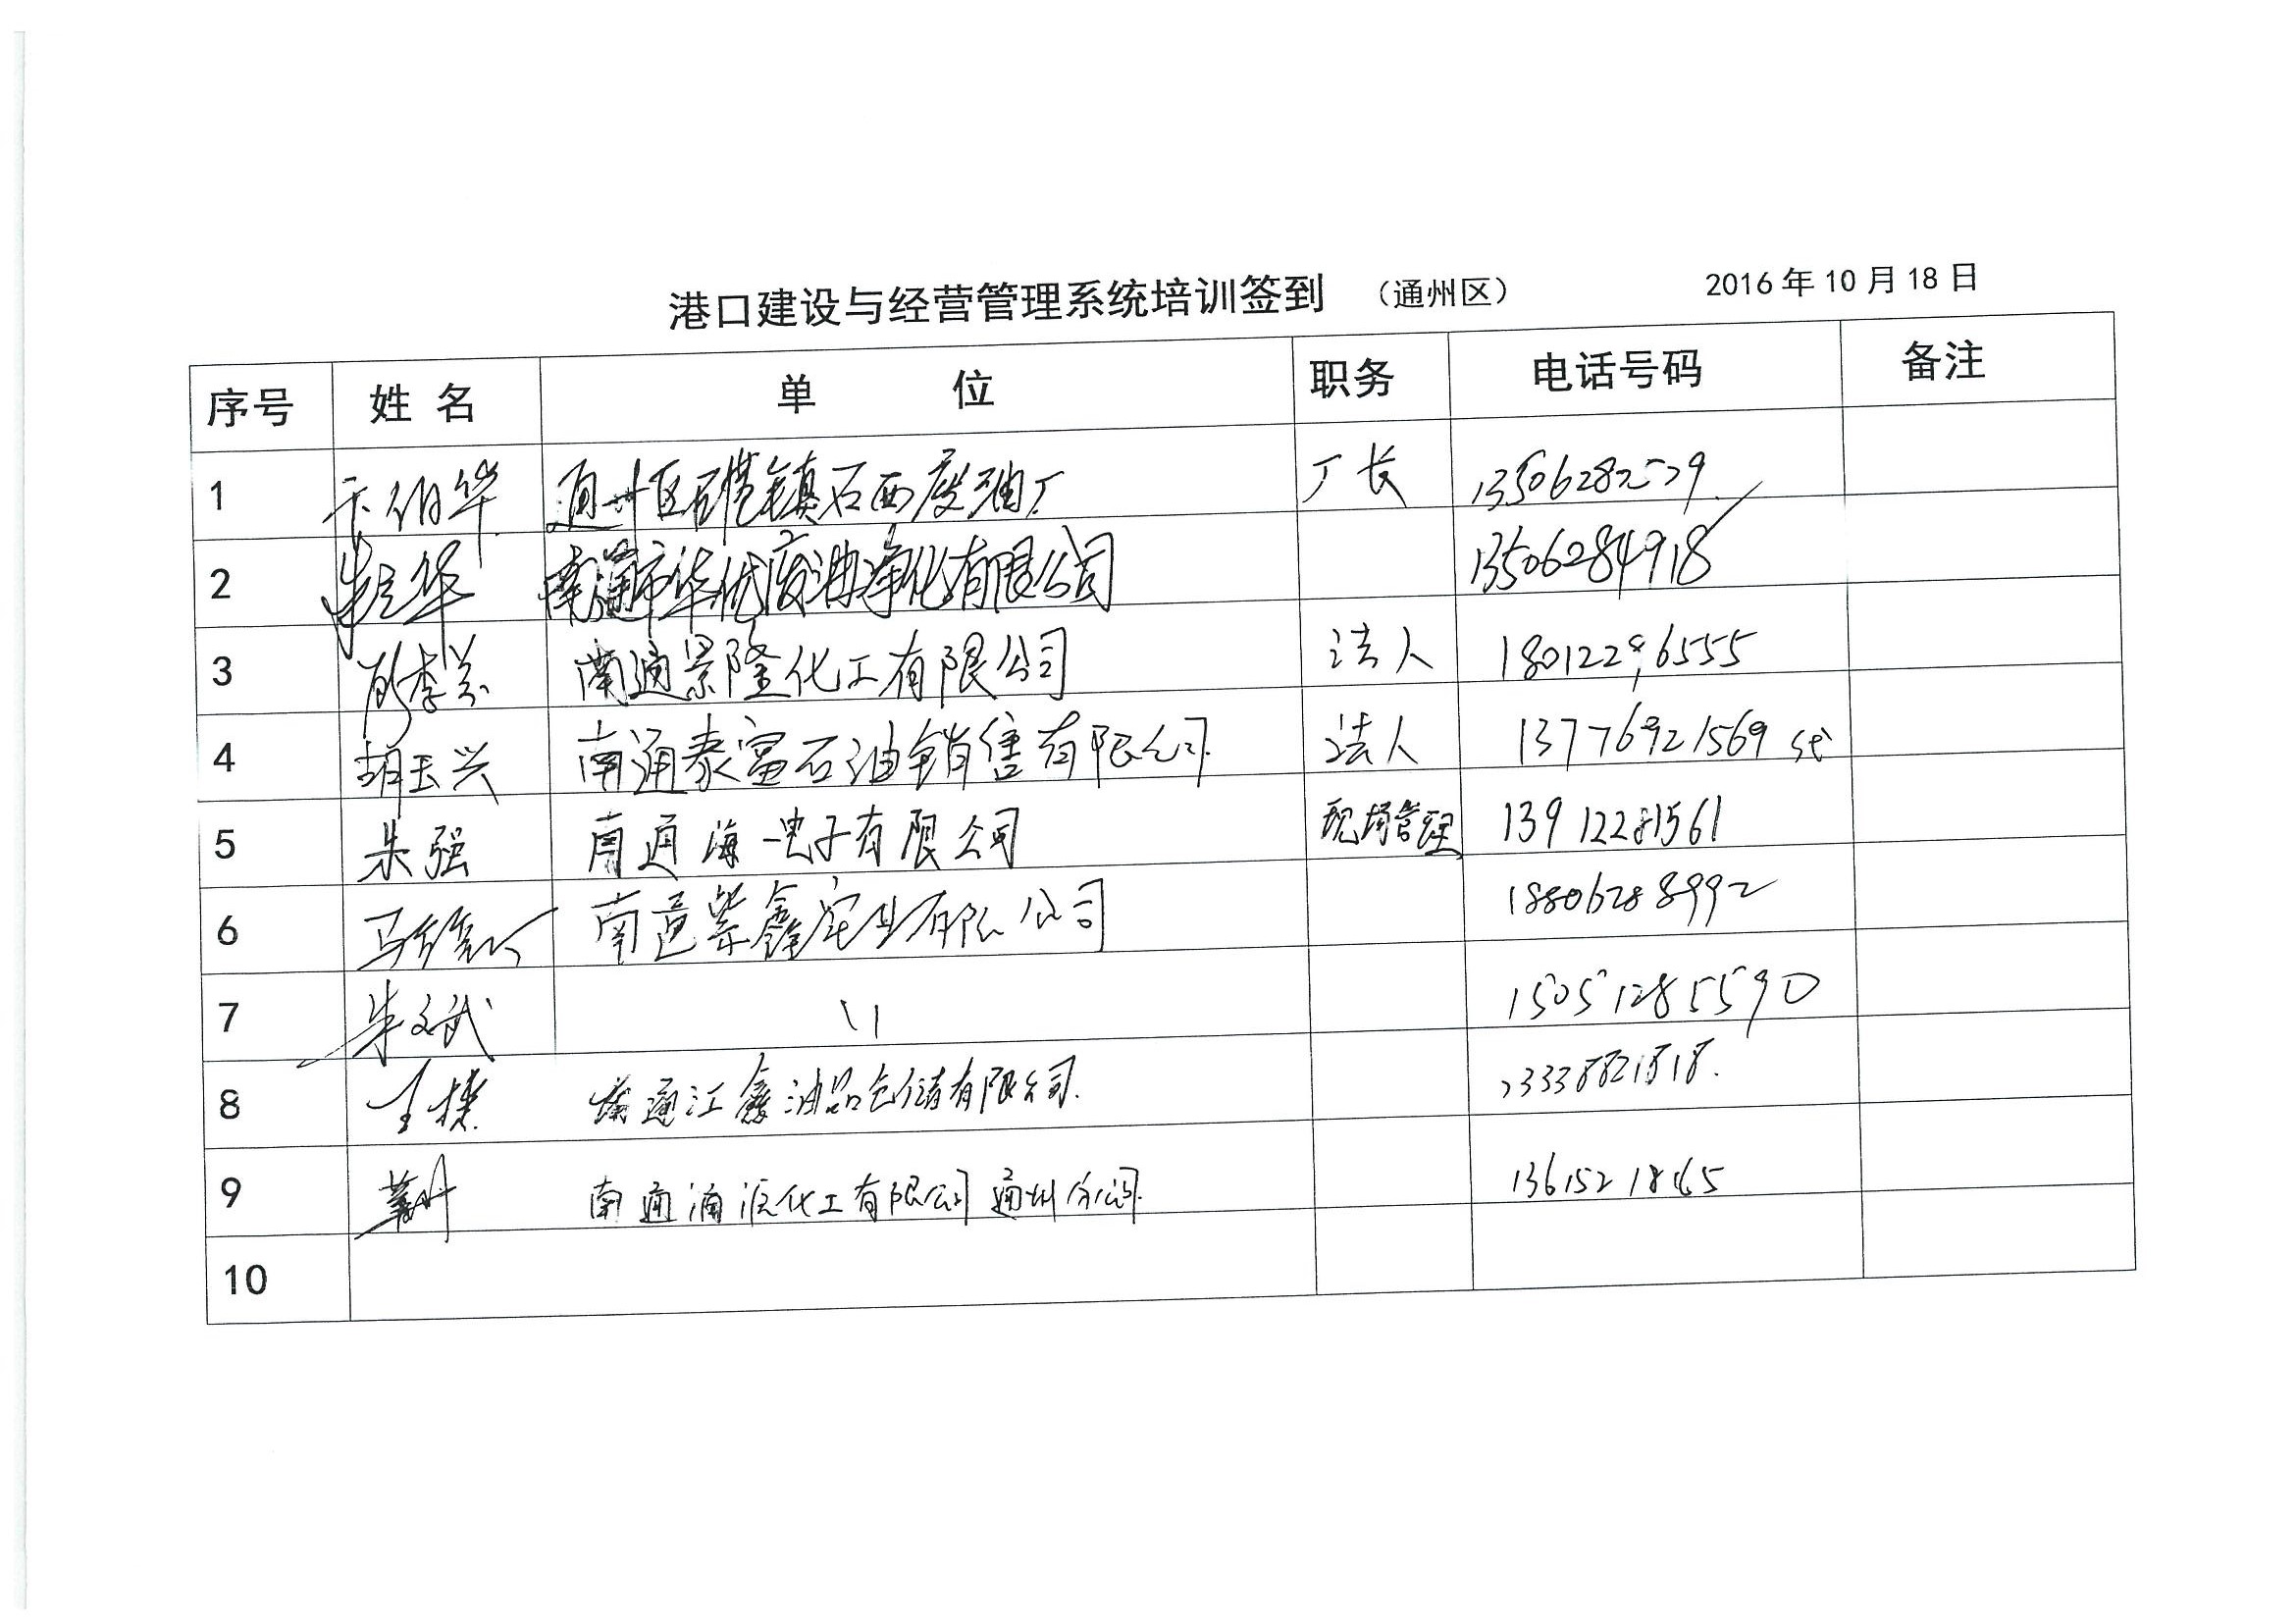 港口建设与经营管理系统培训签到 （通州区） 2016年10月18日
序号 姓名 单位 职务 电话号码 备注
1 卞伯华 通州区五接镇石西废油厂 厂长
2 华 南通市华优废油净化有限公司 13506284918
3 南通景隆化工有限公司 法人
4 胡玉兴 南通泰富石油销售有限公司 法人 13776921569
5 朱强 南通海一电子有限公司 现场管理 13912281561
6 马 南通紫鑫实业有限公司 18806288992
7 朱文斌 \\ 15051285590
8 王 南通江鑫油品仓储有限公司 13338821818
9 南通 化工有限公司通州分公司
10